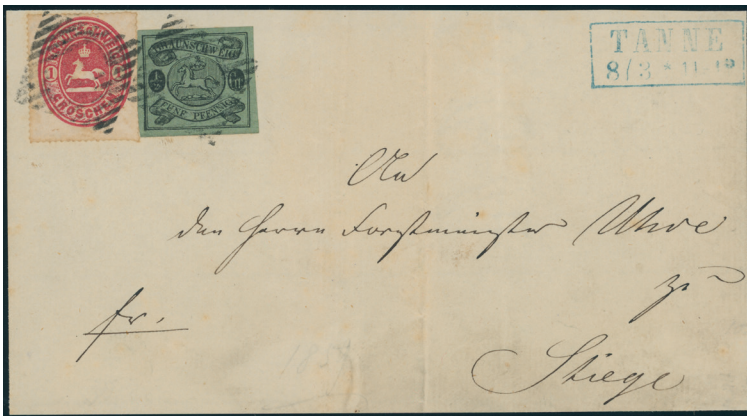 BRAUNSCHWEIG
1 1
GROSCHEN
BRAUNSCHWEIG
1/2 Gr
FÜNF PFENNIG
TANNE
8/3 * 11-12
An
den Herrn Forstmeister Uhde
zu
fr.
Stiege